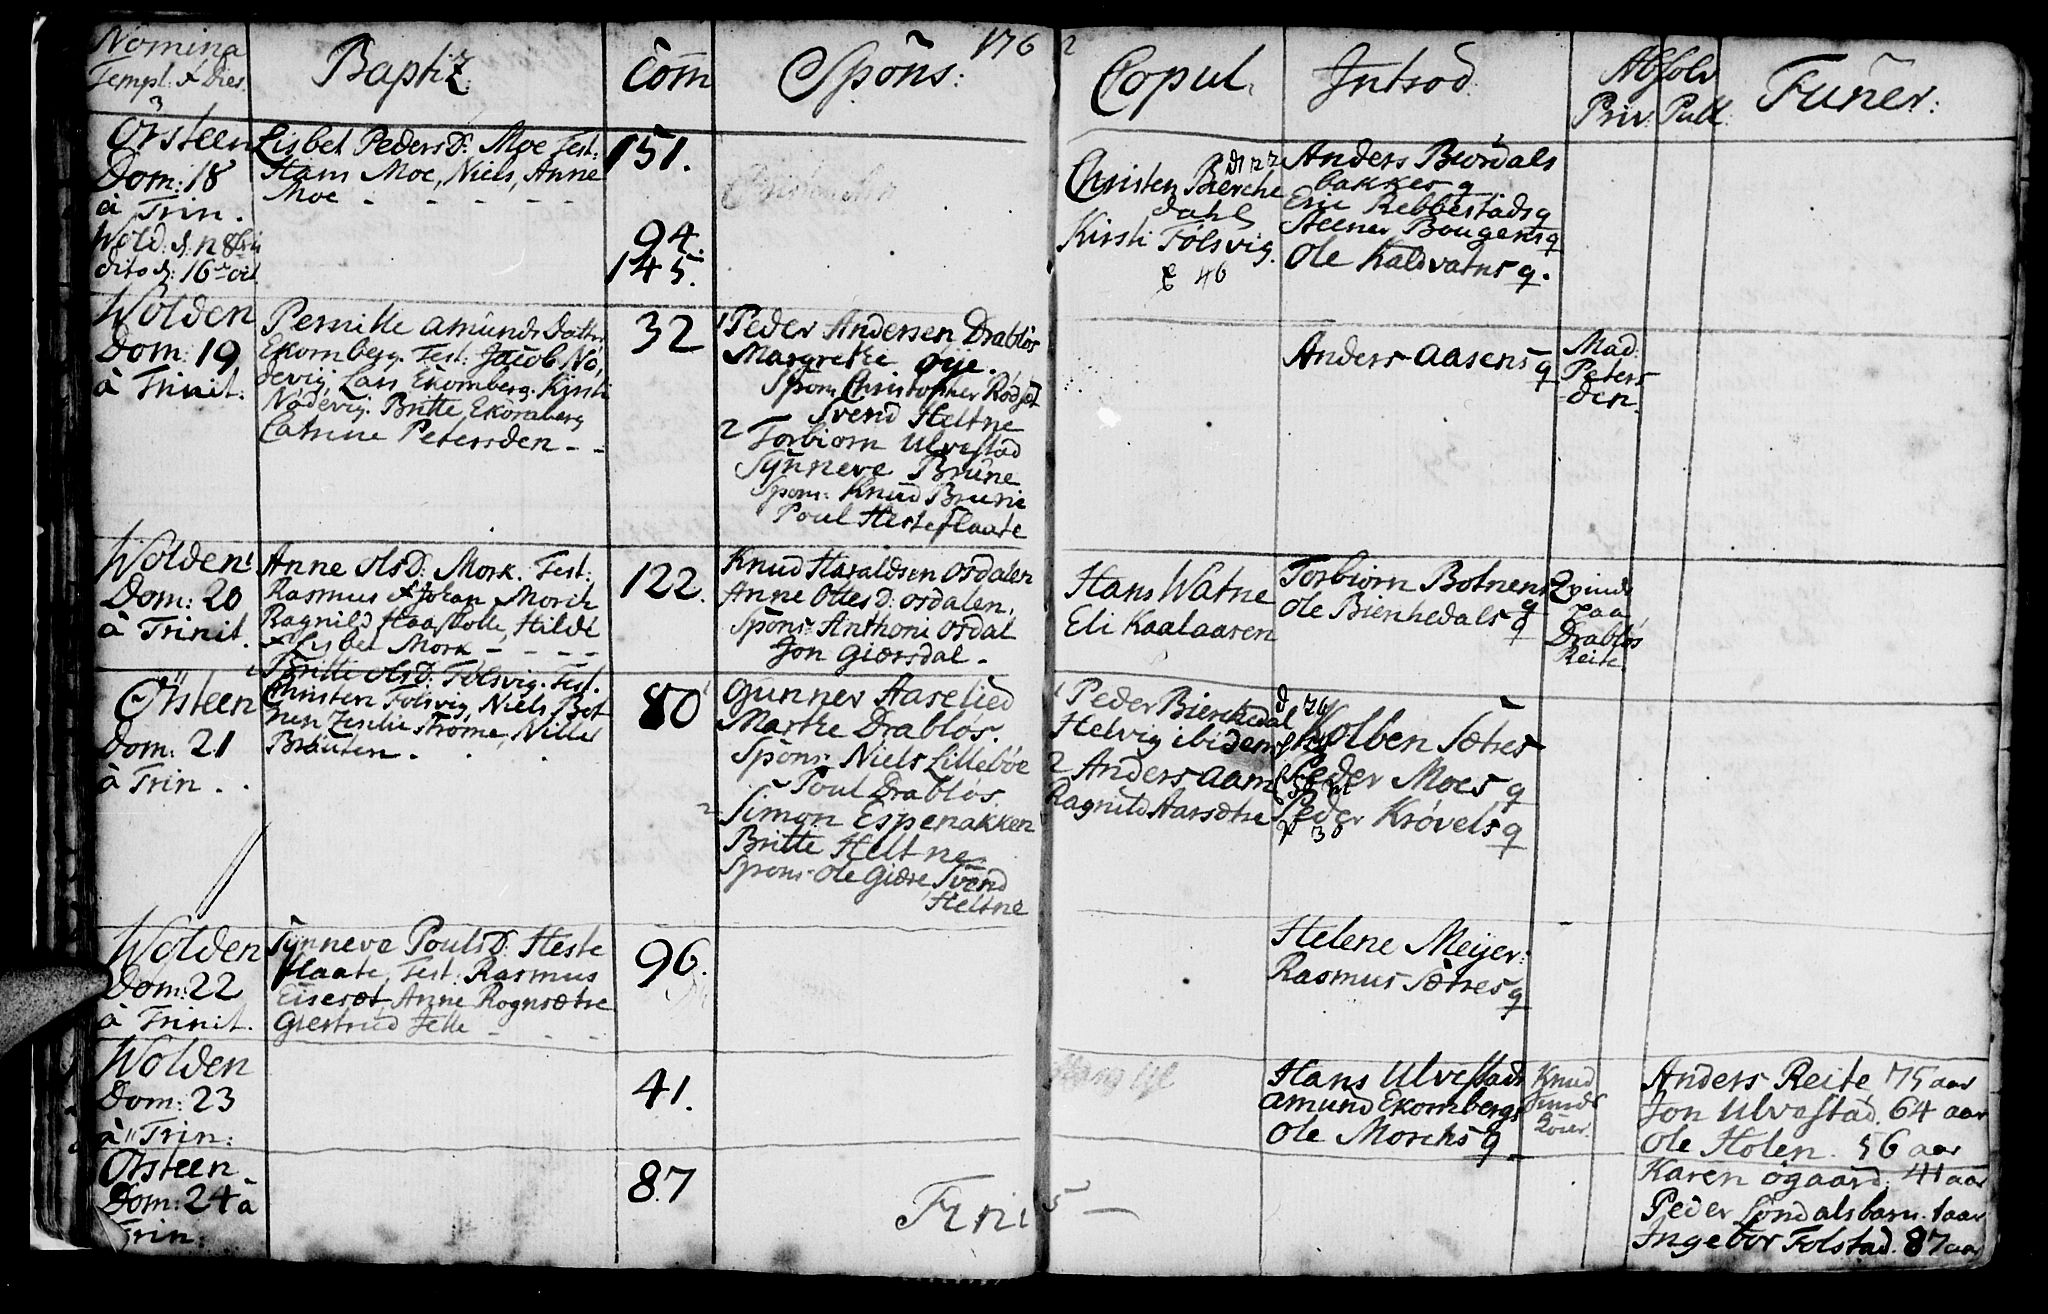 Nomina
Templ: & Dies
Baptiz:
Com
Spons:
176
2
Copul.
Introd:
Absolv
Priv: Publ:
Funer:
Ørsteen
Dom: 18
à Trin.
Wold: d: 12 8bris
dito d: 16 oct
Lisbet PedersD: Moe Test:
Hans Moe, Niels, Anne
Moe - - - - -
151.
94.
145.
Christen Bierche
dahl
Kirsti Følsvig.
46
Anders Biørdals
bakkes q
Eric Rebbestads q
Steener Bougens q
Ole Kaldvatns q.
Wolden
Dom: 19
à Trinit:
Pernille Amunds Datter
Ekornberg. Test: Jacob Nø,
devig, Lars Ekornberg. Kirsti
Nødevig. Britte Ekornberg
Catrine Petersden - -
32
1 Peder Andersen Drabløs
Margrethe Øye.
Spons Christopher Rødset
Svend Heltne
2 Torbiørn Ulvestad
Synneve Brune
Spons: Knud Brune
Poul Hesteflaate
Anders Aasens q
Mad:
Peters
den.
Wolden
Dom: 20
à Trinit.
Anne OlsD: Mork. Test:
Rasmus & Johan Morch
Ragnild Haaskolle, Hilde
& Lisbet Mork - - - -
122.
Knud Haraldsen Osdalen
Anne OttesD: Osdalen.
Spons: Anthoni Osdal
Jon Giærsdal -
Hans Watne
Eli Kaalaasen
Torbiørn Botnens q
Ole Bienhedals q
Qvinde
paa
Drabløs
Reite
Ørsteen
Dom: 21
à Trin.
Britte OlsD. Følsvig. Test.
Christen Følsvig, Niels Bot
nen Zesilie Strøme, Nille
Brauten.
80
1 Gunner Aaselied
Marthe Drabløs.
Spons: Niels Lillebøe
Poul Drabløs.
2 Simon Espenakken
Britte Heltne
Spons: Ole Giære, Svend
Heltne
1 Peder Bierchedal
Helvig ibidem
2 Anders Aam
Ragnild Aarsætre
Kolben Sætres
Peder Moes q
Peder Krøvels q
30
Wolden
Dom: 22
à Trinit.
Synneve PoulsD: Heste
flaate, Test: Rasmus
Eiseset Anne Rognsætre
Giertrud Jelle - - -
96.
Helene Meyer:
Rasmus Sætres q
Wolden
Dom: 23
à Trin:
41.
Hans Ulvestads
Amund Ekornbergs
Ole Morchs q
Knud
Anders Reite 75 aar
Jon Ulvestad. 64 aar
Ole Holen. 56 aar
Ørsteen
Dom: 24 à
Trin:
87
Finis
Karen Øgaard. 41 aar
Peder Søndalsbarn. 1 aar
Ingebor Folstad. 87 aar